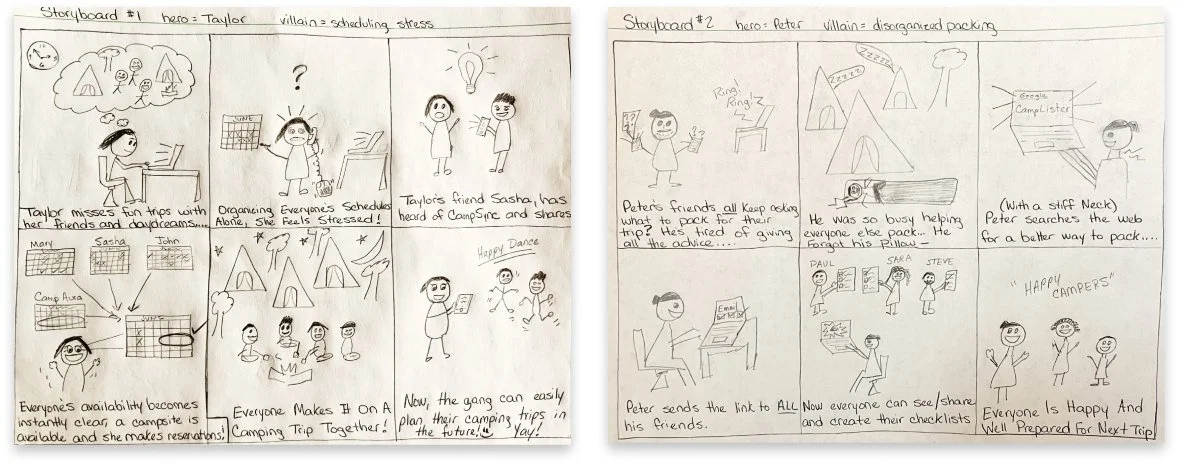 Storyboard #1 hero = Taylor villain = scheduling stress
Taylor misses fun trips with
her friends and daydreams....
?
JUNE
Organizing Everyone's Schedules
Alone, she Feels Stressed!
Taylor's friend Sasha, has
heard of CampSync and shares
Mary
Sasha
John
Camp Aura
JUNE
Everyone's availability becomes
instantly clear, a campsite is
available and she makes reservations!
Everyone Makes It On A
Camping Trip Together!
Happy Dance
Now, the gang can easily
plan their camping trips in
the future! Yay!
Storyboard #2 hero = Peter villain = disorganized packing
??
Ring!
Ring!
Peter's friends all Keep asking
what to pack for their
trip? He's tired of giving
all the advice....
ZZZZZ
ZZZZZ
He was so busy helping
everyone else pack... He
Forgot his Pillow –
Google
CampLister
(With a stiff Neck)
Peter searches the web
for a better way to pack....
Email
Peter sends the link to ALL
his friends.
PAUL
SARA
STEVE
Now everyone can see/share
and create their checklists
"HAPPY
CAMPERS"
Everyone Is Happy And
Well Prepared For Next Trip